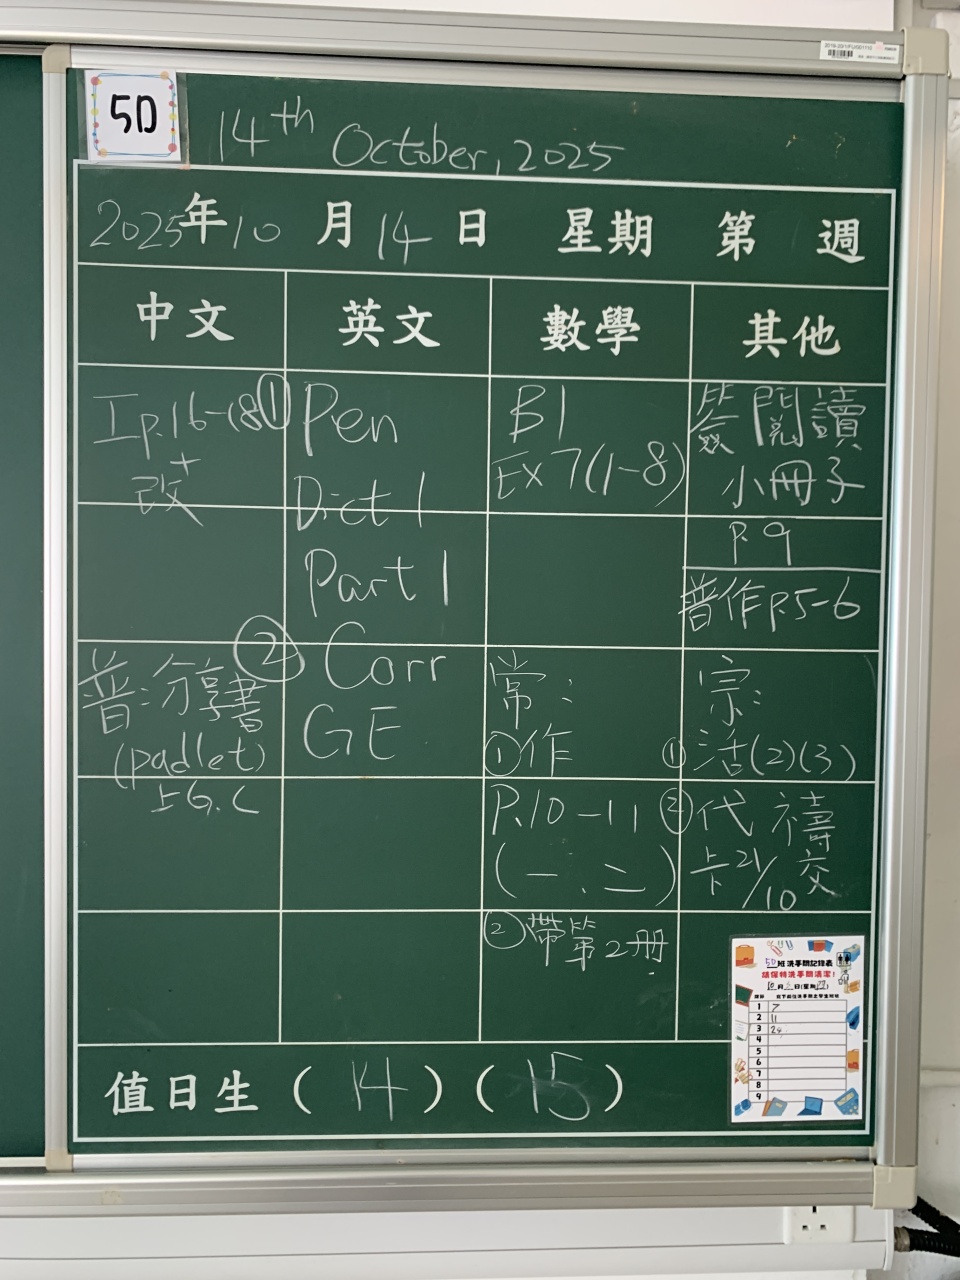 5D
14th October, 2025
2025年10月14日 星期 第 週
中文
英文
數學
其他
工p.16-18
+
改
① Pen
Dict 1
Part 1
B1
Ex 7(1-8)
簽閱讀
小冊子
P.9
普作p.5-6
普:分享書
(padlet)
上G.C
② Corr
GE
常:
①作
P.10-11
(一、二)
②帶第2冊
宗:
①活(2)(3)
②代禱
卡21/10交
5D班洗手間記錄表
請保持洗手間清潔!
1 7
2 11
3 24
4
5
6
7
8
9
值日生 ( 14 ) ( 15 )